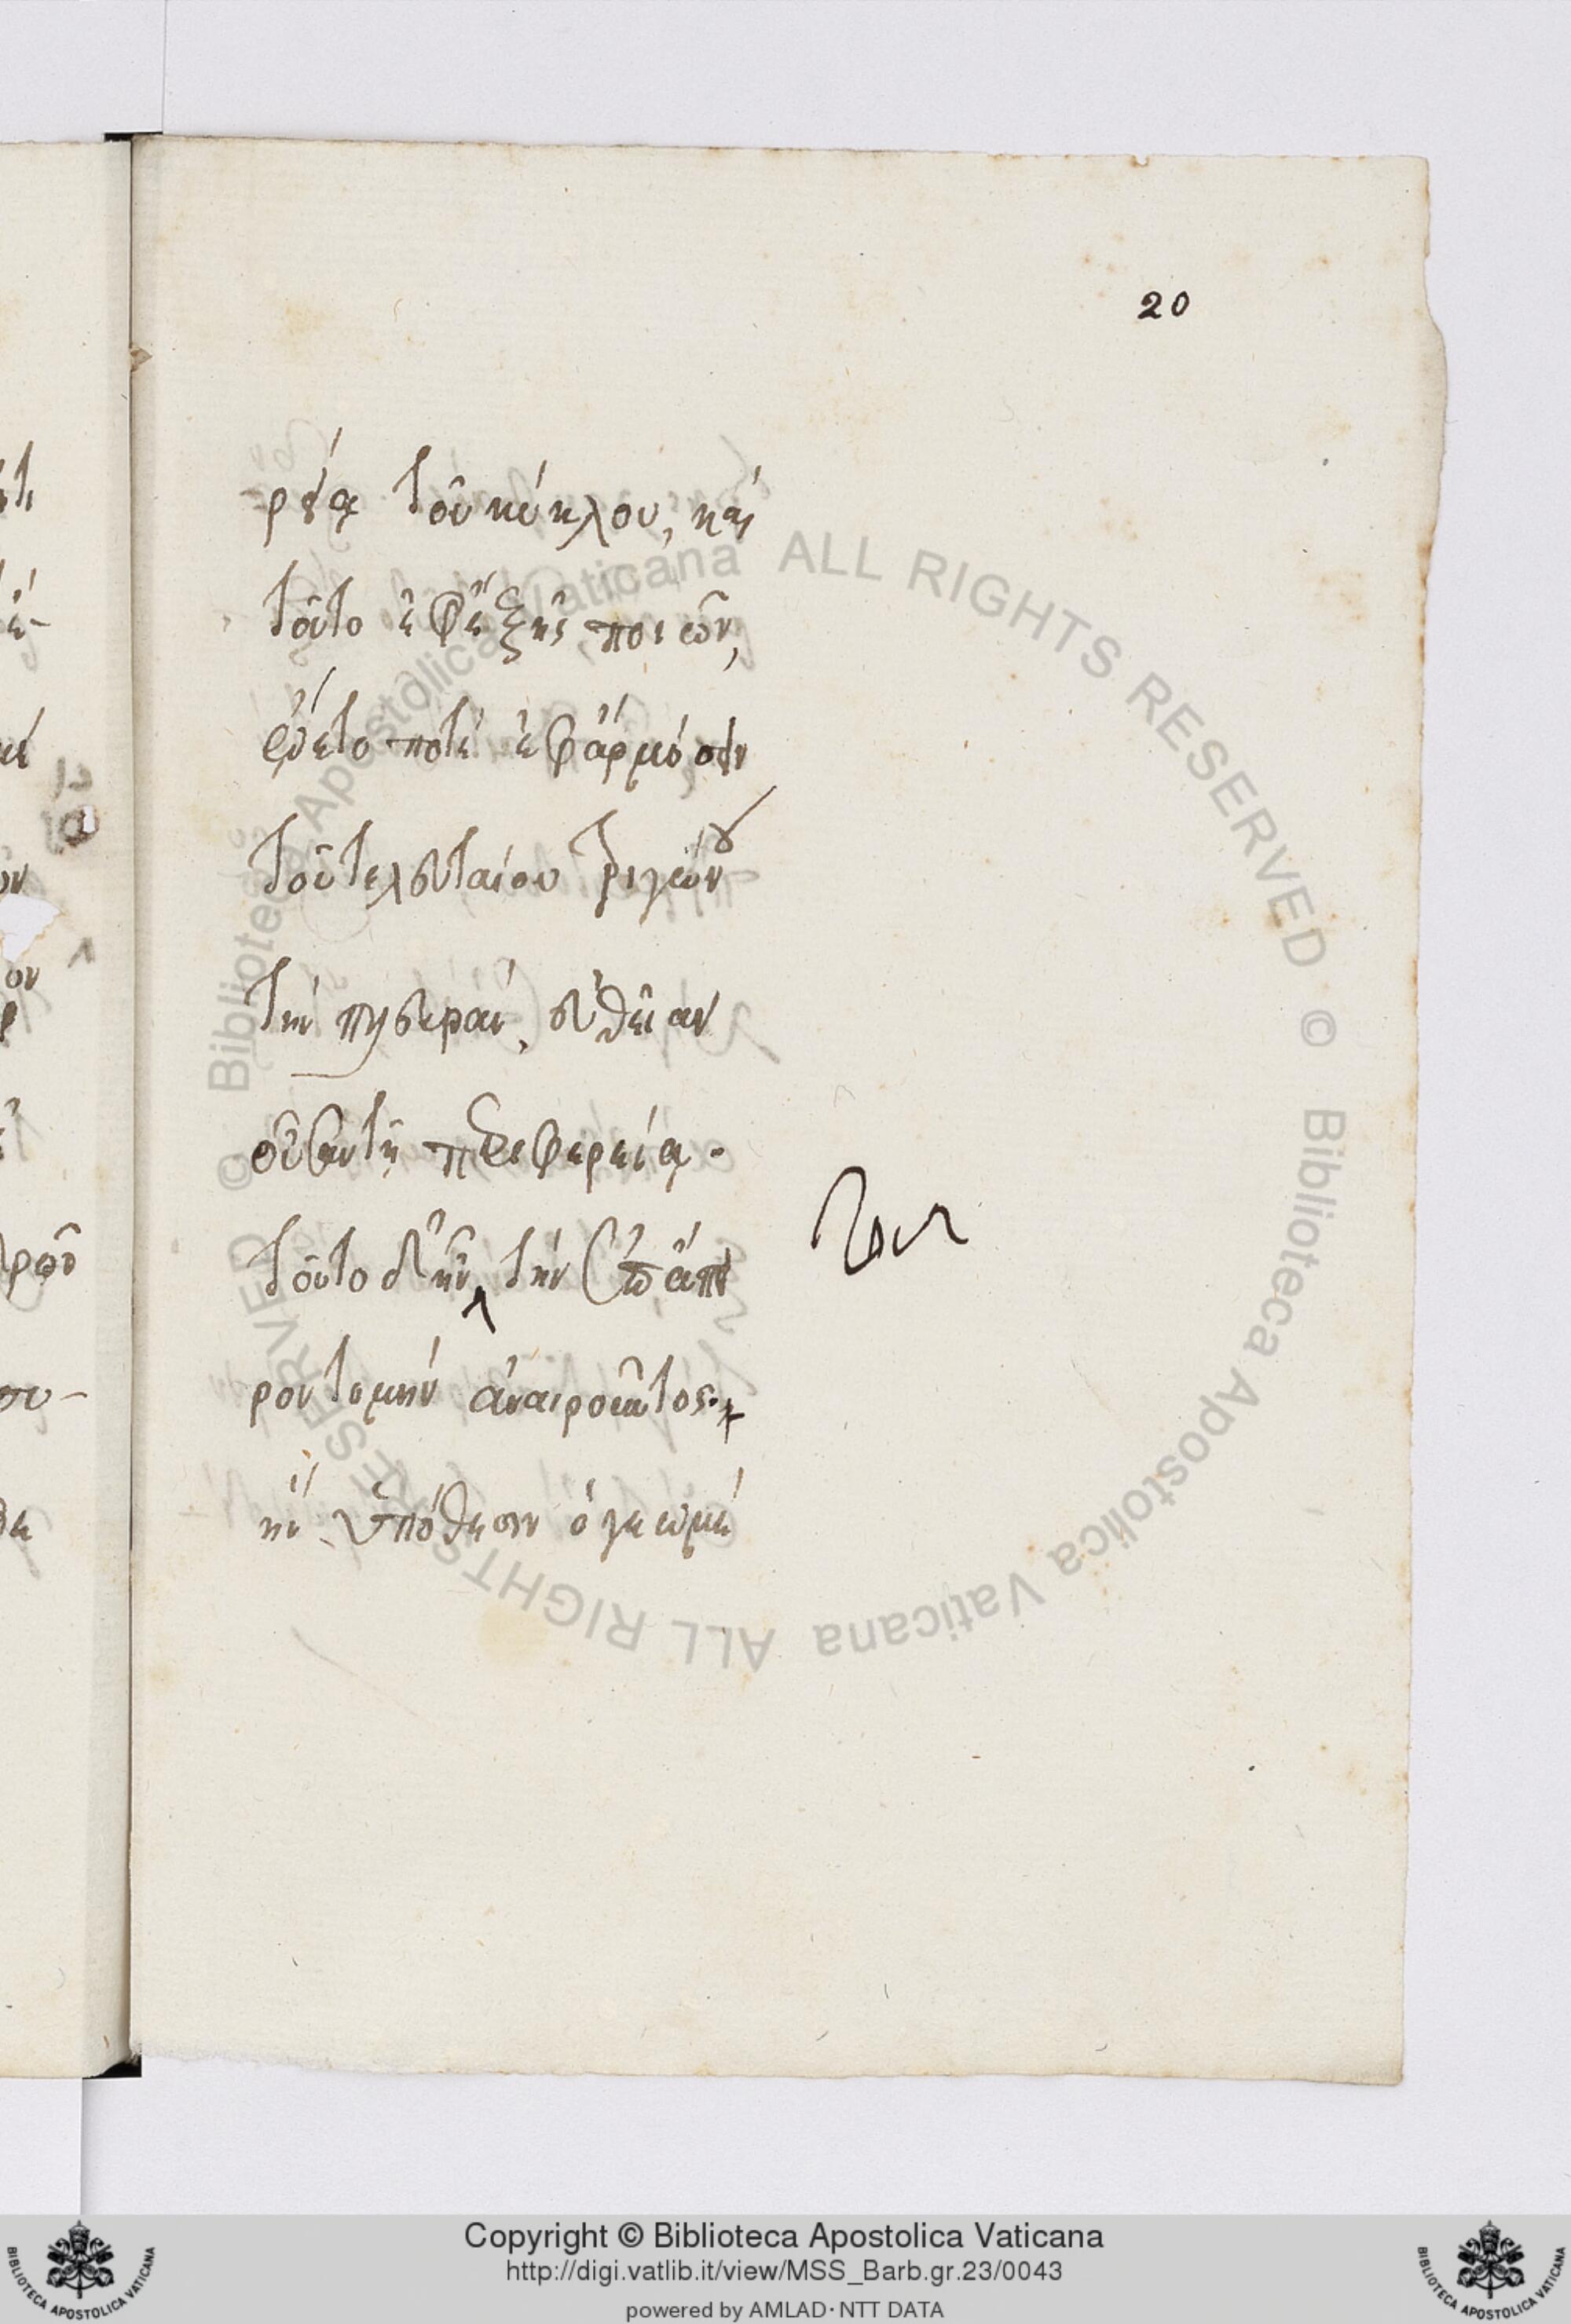 20
ρέα τοῦ κύκλου, καὶ
τοῦτο ἐφεξῆς ποιῶν,
ᾤετό ποτε ἐφαρμόσειν
τοῦ τελευταίου τριγώνου
τὴν πλευρὰν, εὐθεῖαν
οὖσαν τῇ περιφερείᾳ.
τοῦτο δὲ ἦν τὴν ἐπ' ἄπει
ρον τομὴν ἀναιροῦντος.
ἣν ὑπόθεσιν ὁ γεωμέ
© Biblioteca Apostolica Vaticana ALL RIGHTS RESERVED © Biblioteca Apostolica Vaticana ALL RIGHTS RESERVED
Copyright © Biblioteca Apostolica Vaticana
http://digi.vatlib.it/view/MSS_Barb.gr.23/0043
powered by AMLAD · NTT DATA
BIBLIOTECA APOSTOLICA VATICANA
BIBLIOTECA APOSTOLICA VATICANA